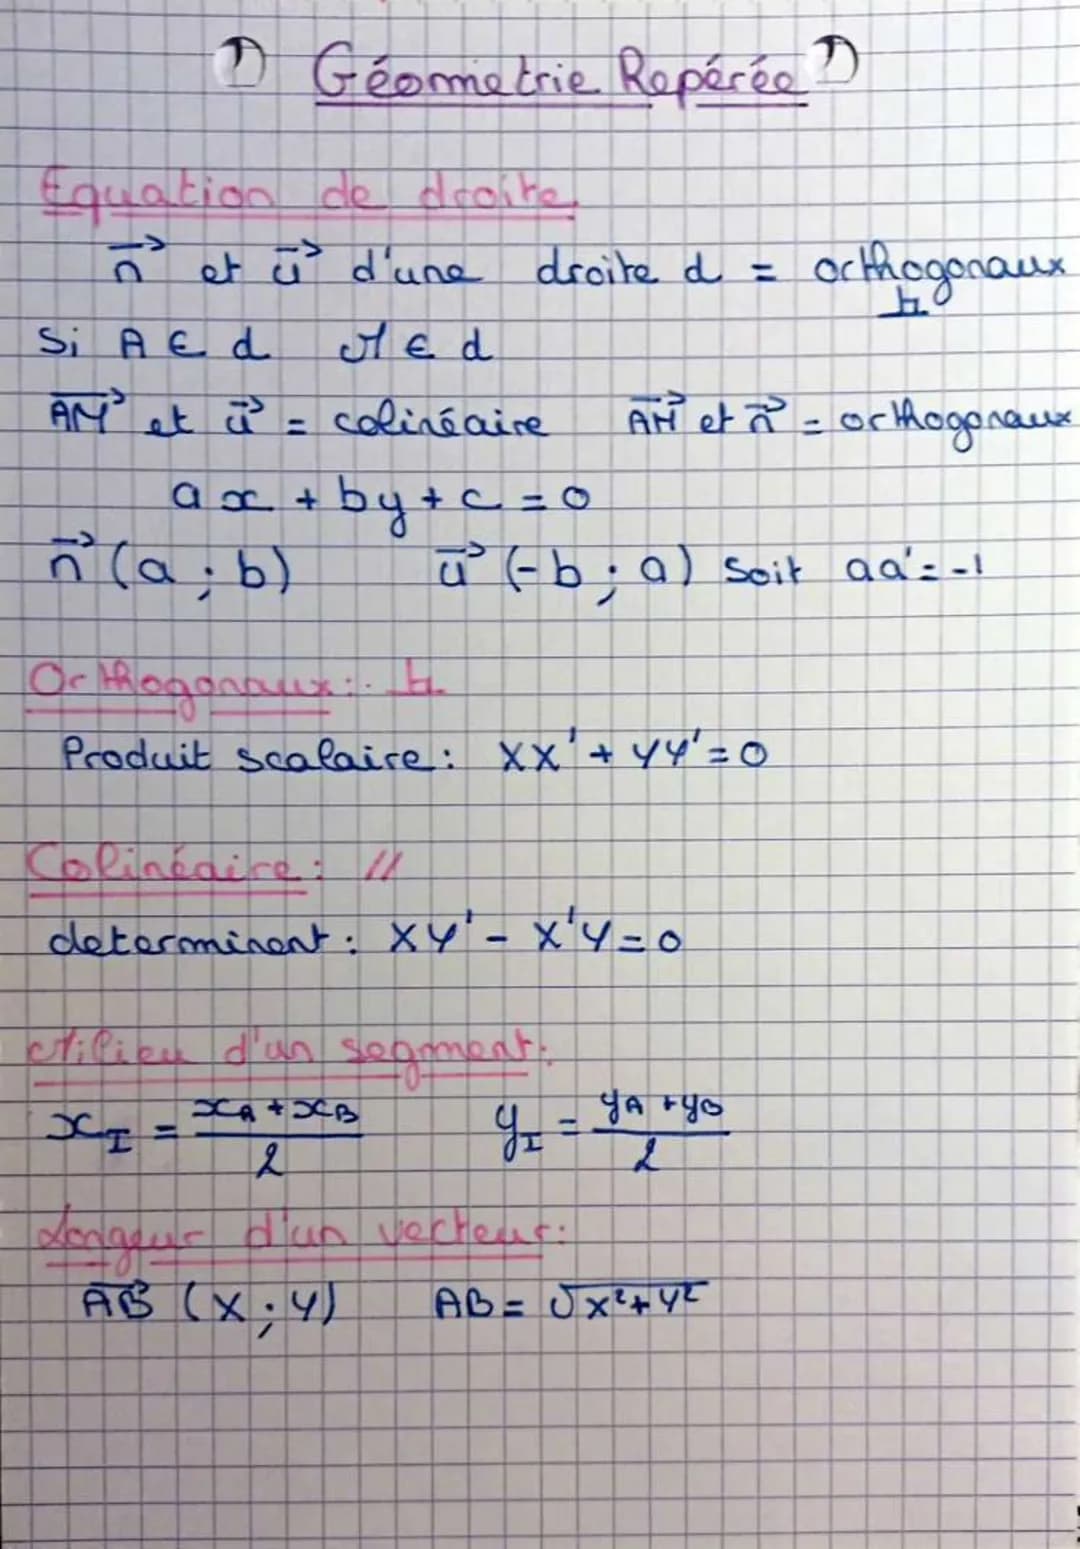 ① Géometrie Repérée ①
Equation de droite
n⃗ et u⃗ d'une droite d = orthogonaux
Si A ∈ d M ∈ d
AM⃗ et u⃗ = colinéaire AM⃗ et n⃗ = orthogonaux
ax + by + c = 0
n⃗ (a ; b) u⃗ (-b ; a) Soit aa' = -1
Orthogonaux :
Produit scalaire : XX' + YY' = 0
Colinéaire : //
determinent : XY' - X'Y = 0
Milieu d'un segment :
x_I = (x_A + x_B)/2 y_I = (y_A + y_B)/2
Longeur d'un vecteur :
AB⃗ (X ; Y) AB = √(X² + Y²)